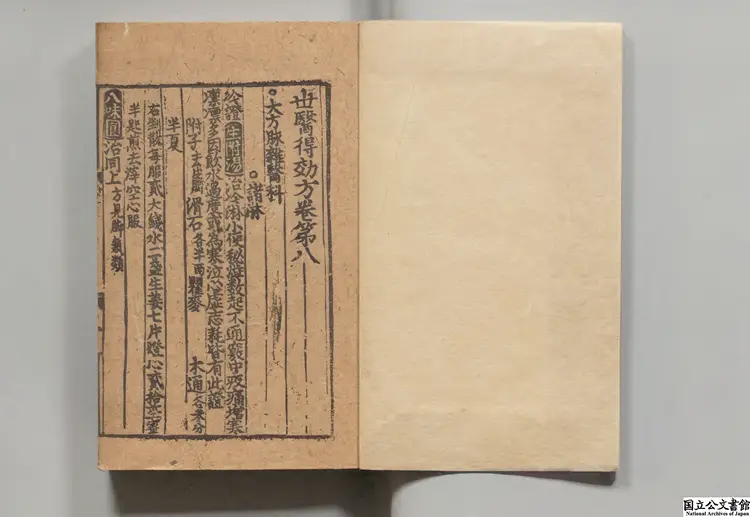 世醫得効方卷第八
大方脉雜醫科
諸淋
冷證 生附湯 治冷淋小便秘澁數起不通竅中疼痛增寒
凜凜多因飲水過度或為寒泣心虛志耗皆有此證
附子去皮臍 滑石各半兩 瞿麥 木通各柒分
半夏
右剉散每服貳大錢水二盞生薑七片燈心貳拾莖蜜
半匙煎去滓空心服
八味圓 治同上方見脚氣類
国立公文書館
National Archives of Japan